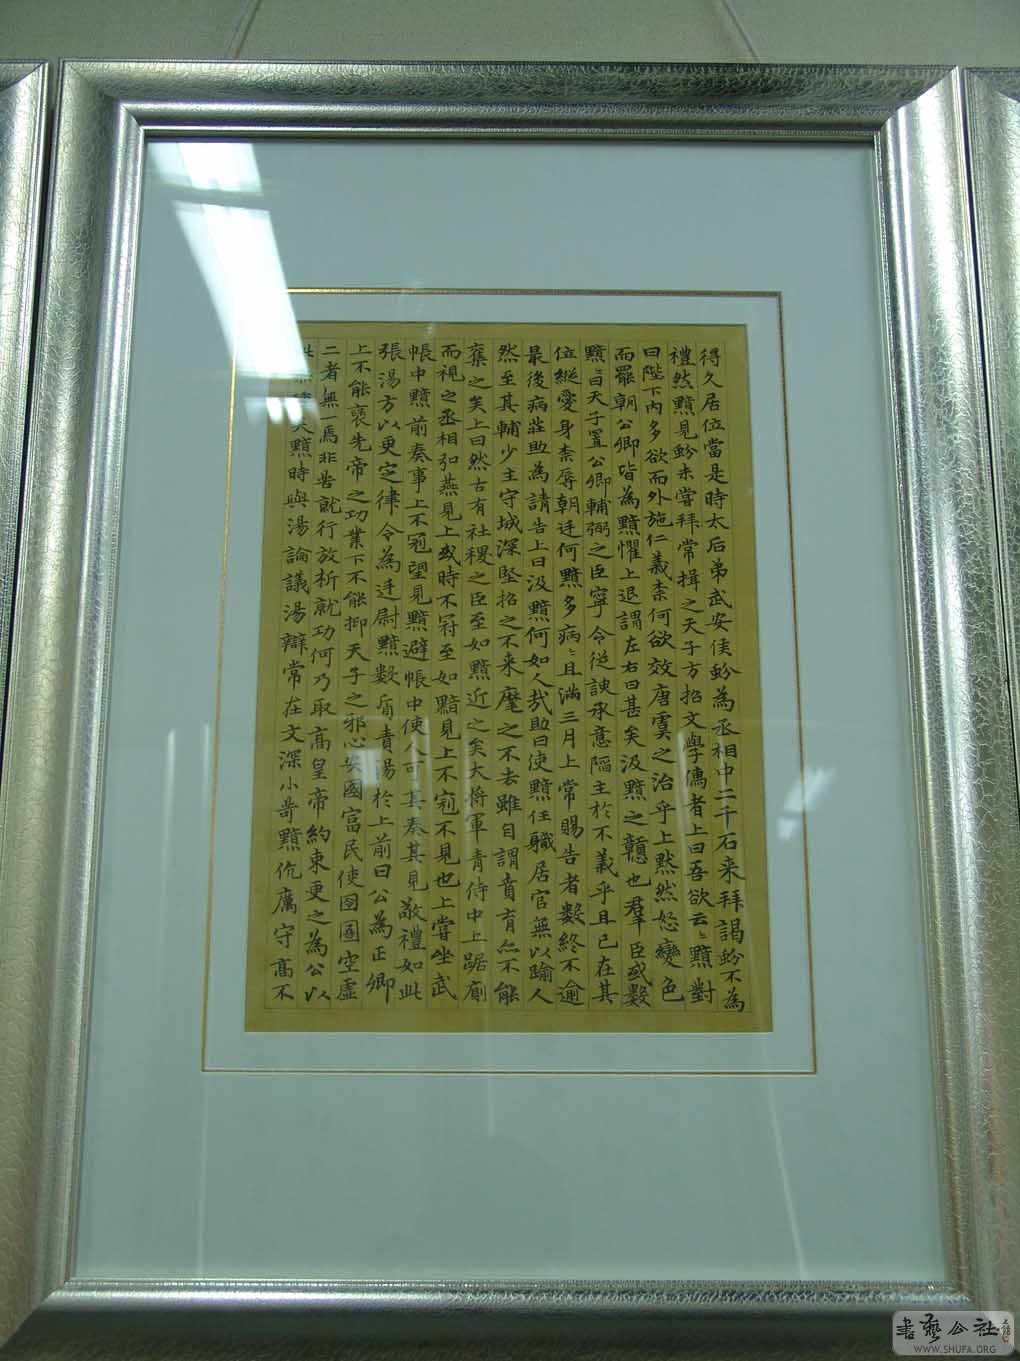 得久居位當是時太后弟武安侯蚡為丞相中二千石来拜謁蚡不為
禮然黯見蚡未嘗拜常揖之天子方招文學儒者上曰吾欲云〻黯對
曰陛下內多欲而外施仁義柰何欲效唐虞之治乎上黙然怒變色
而罷朝公卿皆為黯懼上退謂左右曰甚矣汲黯之戇也羣臣或數
黯〻曰天子置公卿輔弼之臣寧令從諛承意陷主於不義乎且已在其
位縱愛身柰辱朝廷何黯多病〻且滿三月上常賜告者數終不逾
最後病莊助為請告上曰汲黯何如人哉助曰使黯任職居官無以踰人
然至其輔少主守城深堅招之不来麾之不去雖自謂賁育亦不能
棄之矣上曰然古有社稷之臣至如黯近之矣大将軍青侍中上踞廁
而視之丞相弘燕見上或時不冠至如黯見上不冠不見也上嘗坐武
帳中黯前奏事上不冠望見黯避帳中使人可其奏其見敬禮如此
張湯方以更定律令為廷尉黯數質責湯於上前曰公為正卿
上不能褒先帝之功業下不能抑天子之邪心安國富民使囹圄空虛
二者無一焉非苦就行放析就功何乃取高皇帝約束更之為公以
此無種矣黯時與湯論議湯辯常在文深小苛黯伉厲守高不
書藝公社
WWW.SHUFA.ORG